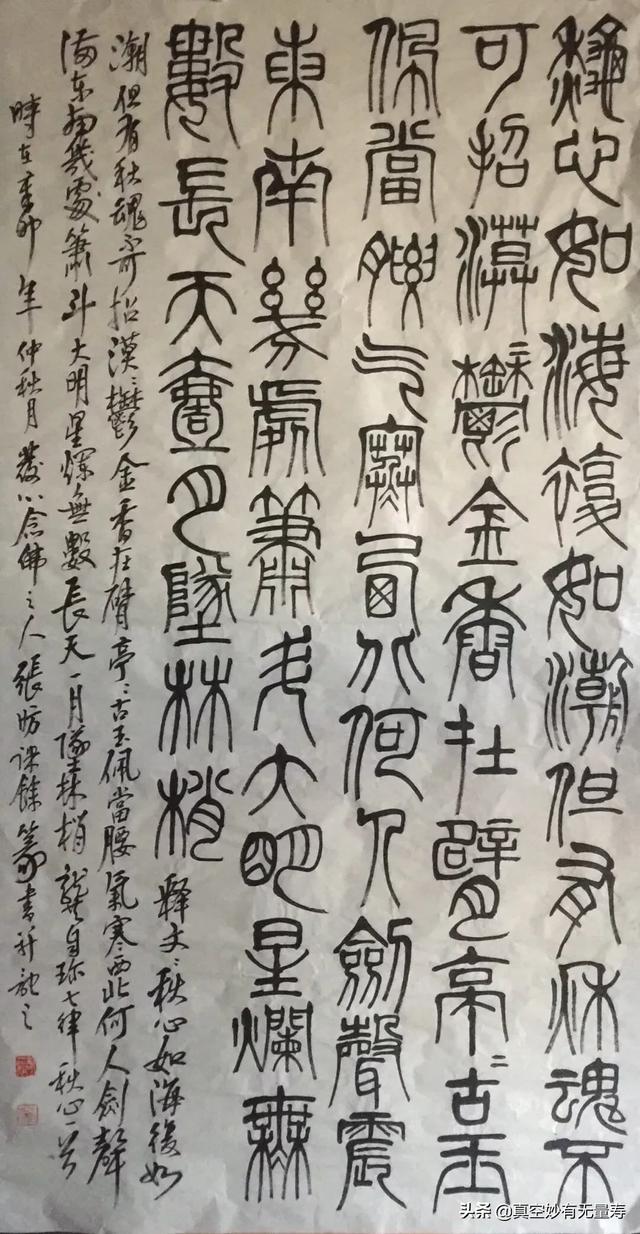 秋心如海復如潮但有秋魂不
可招漠鬱金香在臂亭二古玉
佩當腰气寒西北何人劍聲震
東南幾處簫斗大明星爛無
數長天壹月墜林梢
釋文:秋心如海復如
潮但有秋魂可招漠〻鬱金香在臂亭〻古玉佩當腰氣寒西北何人劍聲
滿东南幾處簫斗大明星爛無數長天一月墜林梢龔自珍七律秋心一首
時在卯年仲秋月發心念佛之人張昉課餘篆書并記之
头条 @真空妙有无量寿